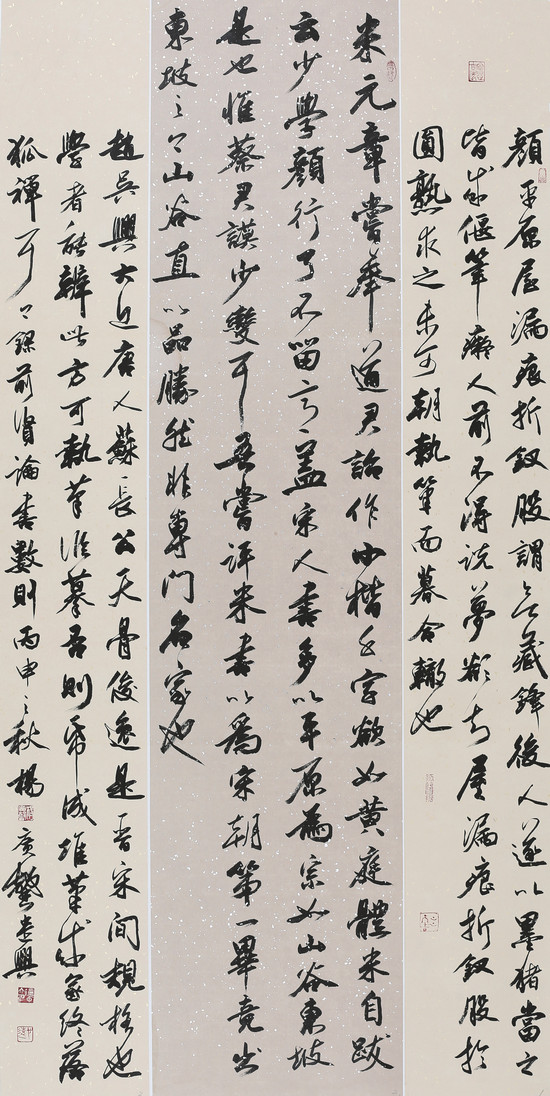 顏平原屋漏痕折釵股謂欲藏鋒後人遂以墨豬當之
皆成偃筆癡人前不得說夢欲知屋漏痕折釵股於
圓熟求之未可朝執筆而暮合轍也
米元章嘗奉道君詔作小楷千字欲如黃庭體米自跋
云少學顏行了不留意蓋宋人書多以平原為宗如山谷東坡
是也惟蔡君謨少變耳吾嘗評米書以為宋朝第一畢竟出
東坡之上山谷直以品勝然非專門名家也
趙吳興大近唐人蘇長公天骨俊逸是晉宋間規格也
學者能辨此方可執筆臨摹否則紙成堆筆成冢終落
狐禪耳錄前賢論書數則丙申之秋楊廣馨